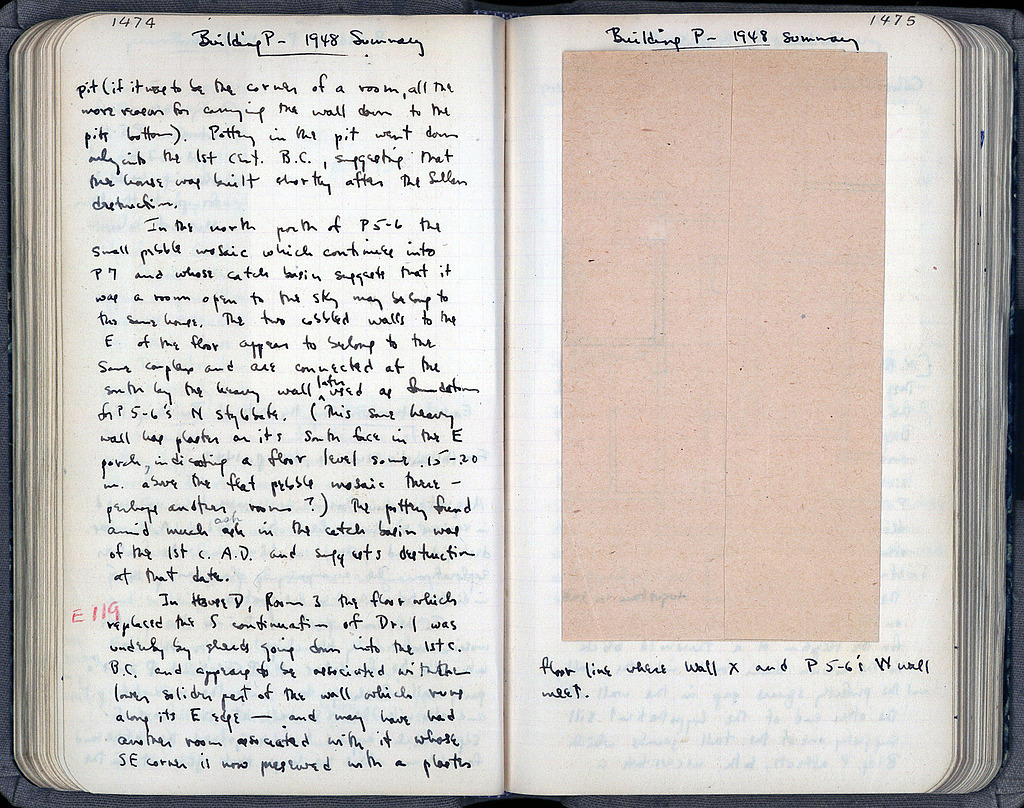 1474
Building P - 1948 Summary
pit (if it was to be the corner of a room, all the
more reason for carrying the wall down to the
pits bottom). Pottery in the pit went down
only into the 1st cent. B.C., suggesting that
the house was built shortly after the Sullan
destruction.
In the north porch of P 5-6 the
small pebble mosaic which continues into
P 7 and whose catch basin suggests that it
was a room open to the sky may belong to
the same house. The two cobbled walls to the
E of the floor appear to belong to the
same complex and are connected at the
south by the heavy wall later used as foundation
for P 5-6's N stylobate. (This same heavy
wall has plaster on its South face in the E
porch, indicating a floor level some .15-20
m. above the flat pebble mosaic there -
perhaps another room?) The pottery found
amid much ash ash in the catch basin was
of the 1st c. A.D. and suggests destruction
at that date.
In House D, Room 3 the floor which
E 119
replaced the S continuation of Dr. 1 was
underlay by sherds going down into the 1st c.
B.C. and appears to be associated with the
lower solider part of the wall which runs
along its E edge — and may have had
another room associated with it whose
SE corner is now preserved with a plaster
1475
Building P - 1948 Summary
floor line where wall X and P 5-6's W wall
meet.